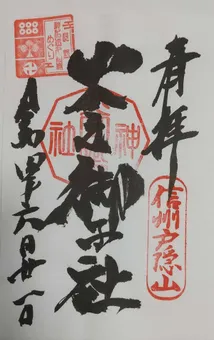 奉拝
信州戸隠山
火之御子社
令和四年六月廿一日